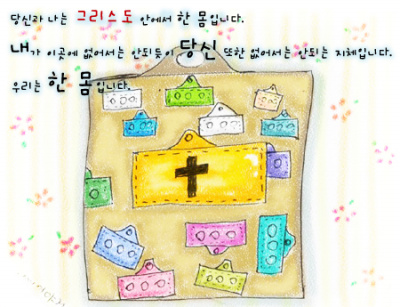 당신과 나는 그리스도 안에서 한 몸입니다.
내가 이곳에 없어서는 안되듯이 당신 또한 없어서는 안되는 지체입니다.
우리는 한 몸입니다.